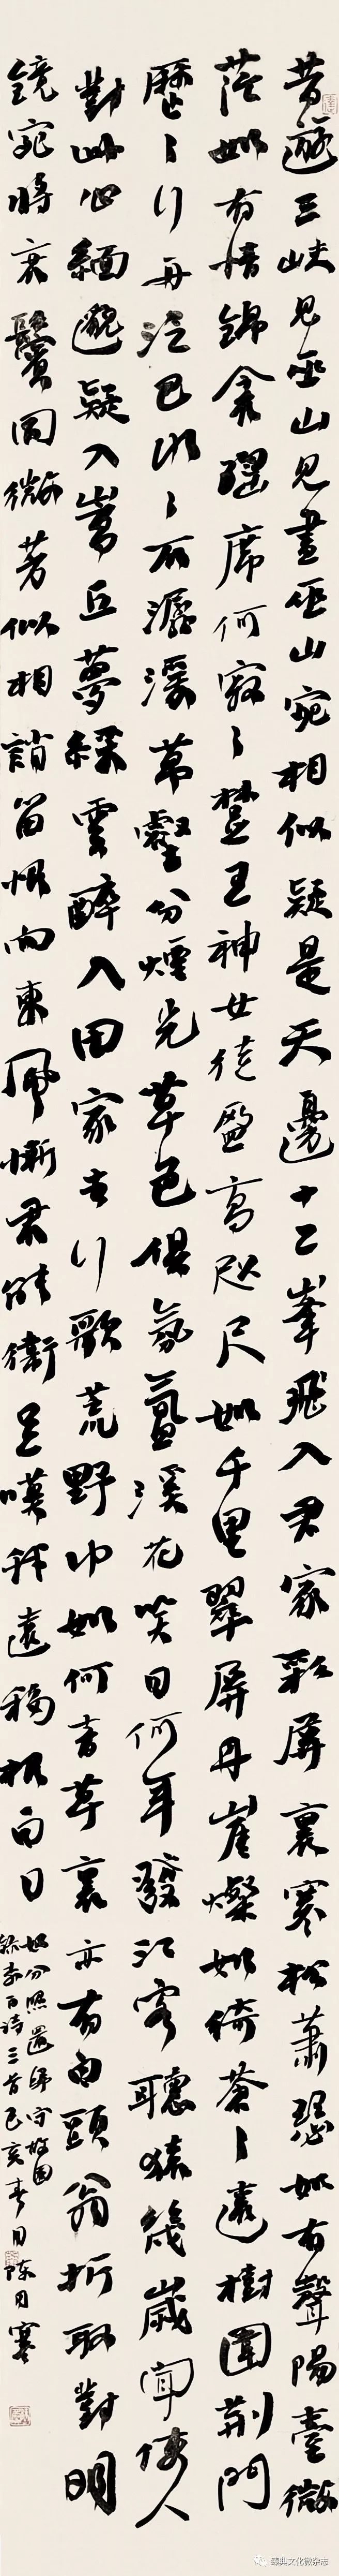 昔遊三峽見巫山見畫巫山宛相似疑是天邊十二峯飛入君家彩屏裏寒松蕭瑟如有聲陽臺微
茫如有情錦衾瑤席何寂〻楚王神女徒盈高咫尺如千里翠屏丹崖燦如綺蒼〻遠樹圍荆門
歷〻行舟泛巴水〻石潺湲萬壑分煙光草色俱氛氳溪花笑日何年發江客聽猿幾歲聞使人
對此心緬邈疑入嵩丘夢綵雲醉入田家去行歌荒野中如何青草裏亦有白頭翁折取對明
鏡宛將衰鬢同微芳似相誚留恨向東風慚君能衛足嘆我遠移根白日
如分照還歸守故園
録李白詩三首己亥春月陳
典文化微杂志